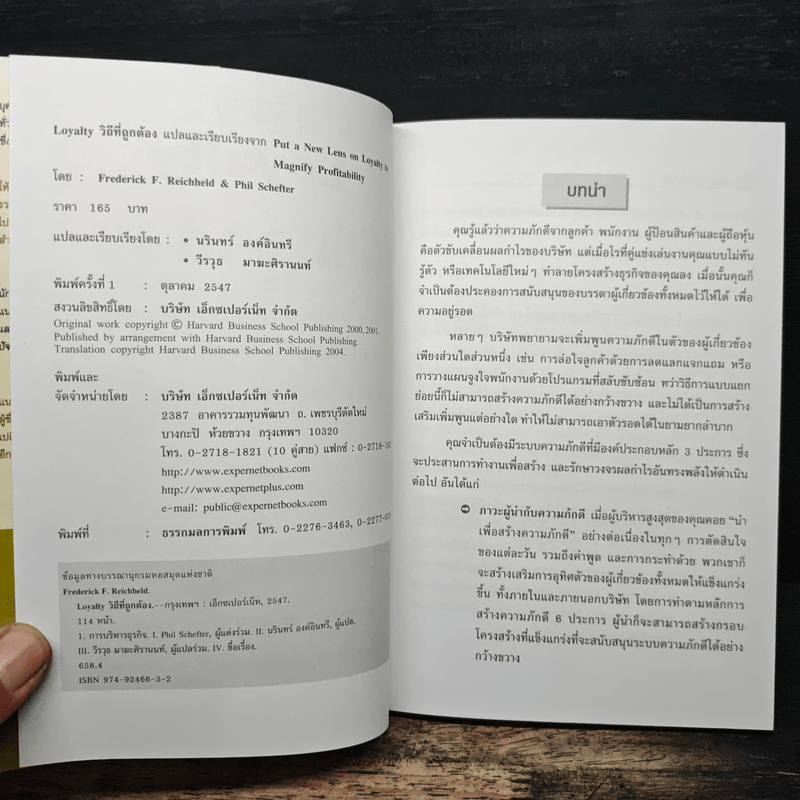 Loyalty วิถีที่ถูกต้อง แปลและเรียบเรียงจาก Put a New Lens on Loyalty to
Magnify Profitability
โดย : Frederick F. Reichheld & Phil Schefter
ราคา 165 บาท
แปลและเรียบเรียงโดย : • นรินทร์ องค์อินทรี
• วีรวุธ มาฆะศิรานนท์
พิมพ์ครั้งที่ 1 : ตุลาคม 2547
สงวนลิขสิทธิ์โดย : บริษัท เอ็กซเปอร์เน็ท จำกัด
Original work copyright © Harvard Business School Publishing 2000, 2001.
Published by arrangement with Harvard Business School Publishing.
Translation copyright Harvard Business School Publishing 2004.
พิมพ์และ
จัดจำหน่ายโดย : บริษัท เอ็กซเปอร์เน็ท จำกัด
2387 อาคารรวมทุนพัฒนา ถ. เพชรบุรีตัดใหม่
บางกะปิ ห้วยขวาง กรุงเทพฯ 10320
โทร. 0-2718-1821 (10 คู่สาย) แฟกซ์ :
http://www.expernetbooks.com
http://www.expernetplus.com
e-mail: public@expernetbooks.com
พิมพ์ที่ : ธรรกมลการพิมพ์ โทร. 0-2276-3463,
ข้อมูลทางบรรณานุกรมหอสมุดแห่งชาติ
Frederick F. Reichheld.
Loyalty วิถีที่ถูกต้อง.--กรุงเทพฯ : เอ็กซเปอร์เน็ท, 2547.
114 หน้า.
1. การบริหารธุรกิจ. I. Phil Schefter, ผู้แต่งร่วม. II. นรินทร์ องค์อินทรี, ผู้แปล.
III. วีรวุธ มาฆะศิรานนท์, ผู้แปลร่วม. IV. ชื่อเรื่อง.
658.4
ISBN 974-92466-3-2
บทนำ
คุณรู้แล้วว่าความภักดีจากลูกค้า พนักงาน ผู้ป้อนสินค้าและผู้ถือหุ้น
คือตัวขับเคลื่อนผลกำไรของบริษัท แต่เมื่อไรที่คู่แข่งเล่นงานคุณแบบไม่ทัน
รู้ตัว หรือเทคโนโลยีใหม่ๆ ทำลายโครงสร้างธุรกิจของคุณลง เมื่อนั้นคุณก็
จำเป็นต้องประคองการสนับสนุนของบรรดาผู้เกี่ยวข้องทั้งหมดไว้ให้ได้ เพื่อ
ความอยู่รอด
หลายๆ บริษัทพยายามจะเพิ่มพูนความภักดีในตัวของผู้เกี่ยวข้อง
เพียงส่วนใดส่วนหนึ่ง เช่น การล่อใจลูกค้าด้วยการลดแลกแจกแถม หรือ
การวางแผนจูงใจพนักงานด้วยโปรแกรมที่สลับซับซ้อน ทว่าวิธีการแบบแยก
ย่อยนี้ก็ไม่สามารถสร้างความภักดีได้อย่างกว้างขวาง และไม่ได้เป็นการสร้าง
เสริมเพิ่มพูนแต่อย่างใด ทำให้ไม่สามารถเอาตัวรอดได้ในยามยากลำบาก
คุณจำเป็นต้องมีระบบความภักดีที่มีองค์ประกอบหลัก 3 ประการ ซึ่ง
จะประสานการทำงานเพื่อสร้าง และรักษาวงจรผลกำไรอันทรงพลังให้ดำเนิน
ต่อไป อันได้แก่
➲ ภาวะผู้นำกับความภักดี เมื่อผู้บริหารสูงสุดของคุณคอย “นำ
เพื่อสร้างความภักดี” อย่างต่อเนื่องในทุกๆ การตัดสินใจ
ของแต่ละวัน รวมถึงคำพูด และการกระทำด้วย พวกเขาก็
จะสร้างเสริมการอุทิศตัวของผู้เกี่ยวข้องทั้งหมดให้แข็งแกร่ง
ขึ้น ทั้งภายในและภายนอกบริษัท โดยการทำตามหลักการ
สร้างความภักดี 6 ประการ ผู้นำก็จะสามารถสร้างกรอบ
โครงสร้างที่แข็งแกร่งที่จะสนับสนุนระบบความภักดีได้อย่าง
กว้างขวาง